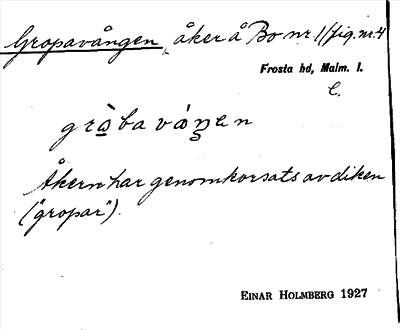 Gropavången, åker å Bo nr 1/fig. nr. 4
Frosta hd, Malm. l.
C.
grὰba vάŋen
Åkern har genomkorsats av diken
("gropar").
EINAR HOLMBERG 1927